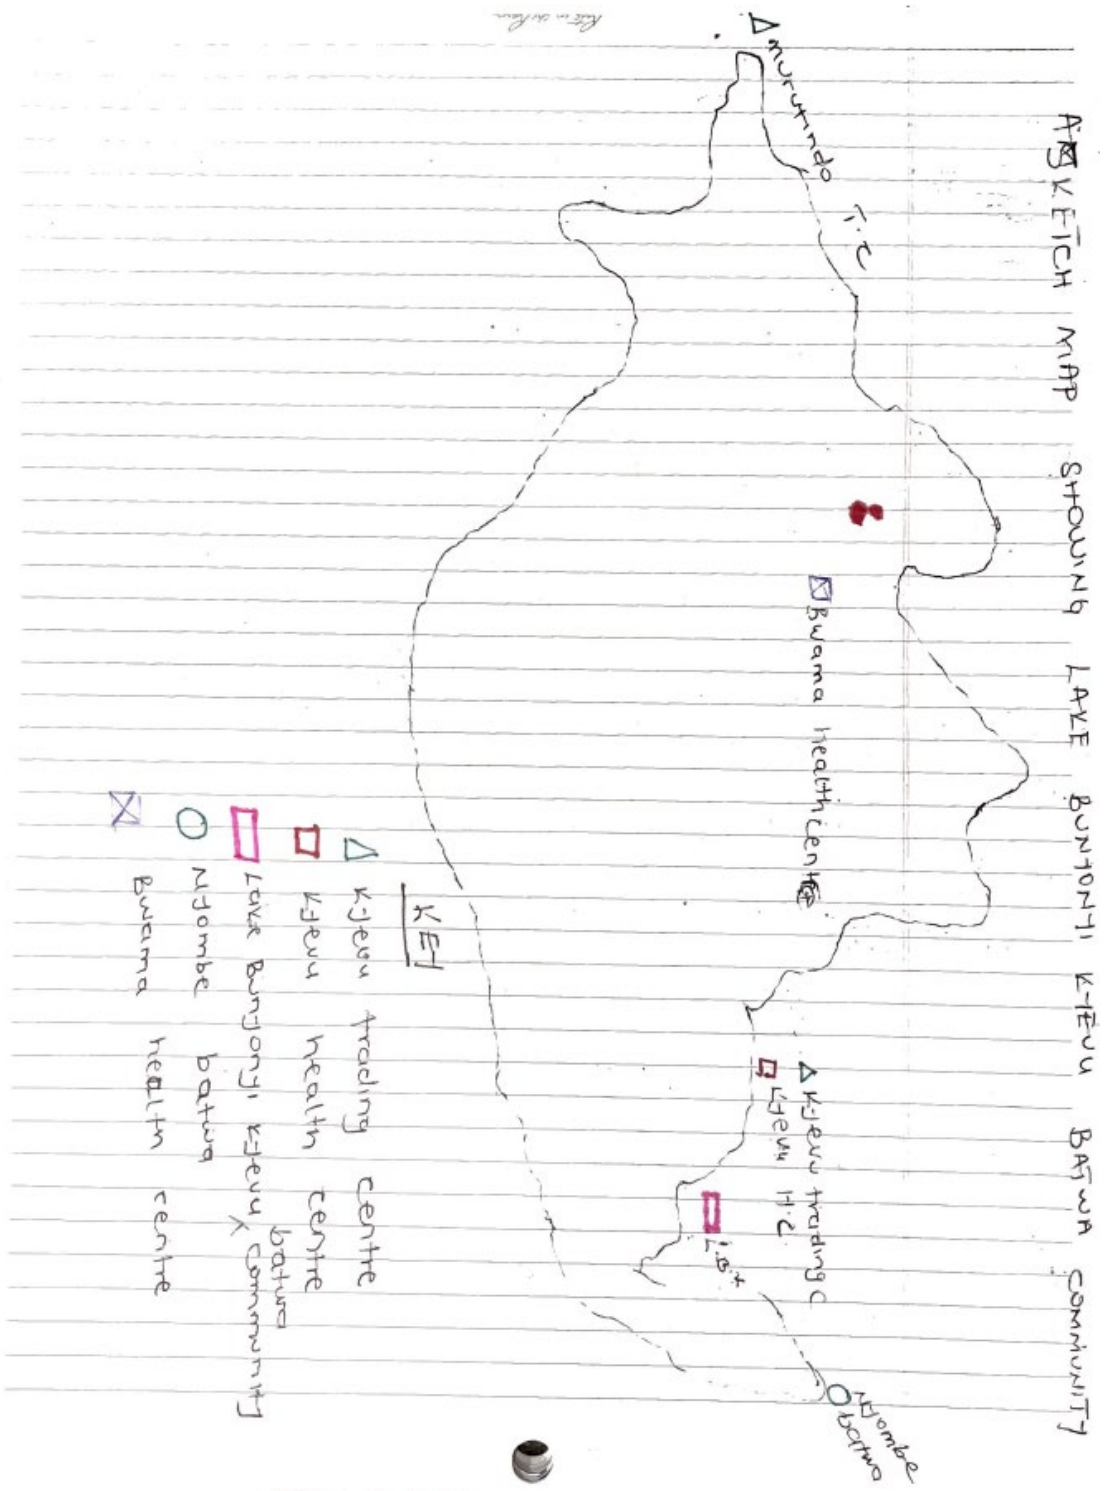 A SKETCH MAP SHOWING LAKE BUNYONYI KYEVU BATWA COMMUNITY
murutindo T.C
Bwama health centre
Kyevu trading C
Kyevu H.C
L.B.K
Nyombe
batwa
KEY
Kyevu trading centre
Kyevu health centre
Lake Bunyonyi Kyevu batwa community
Nyombe batwa
Bwama health centre